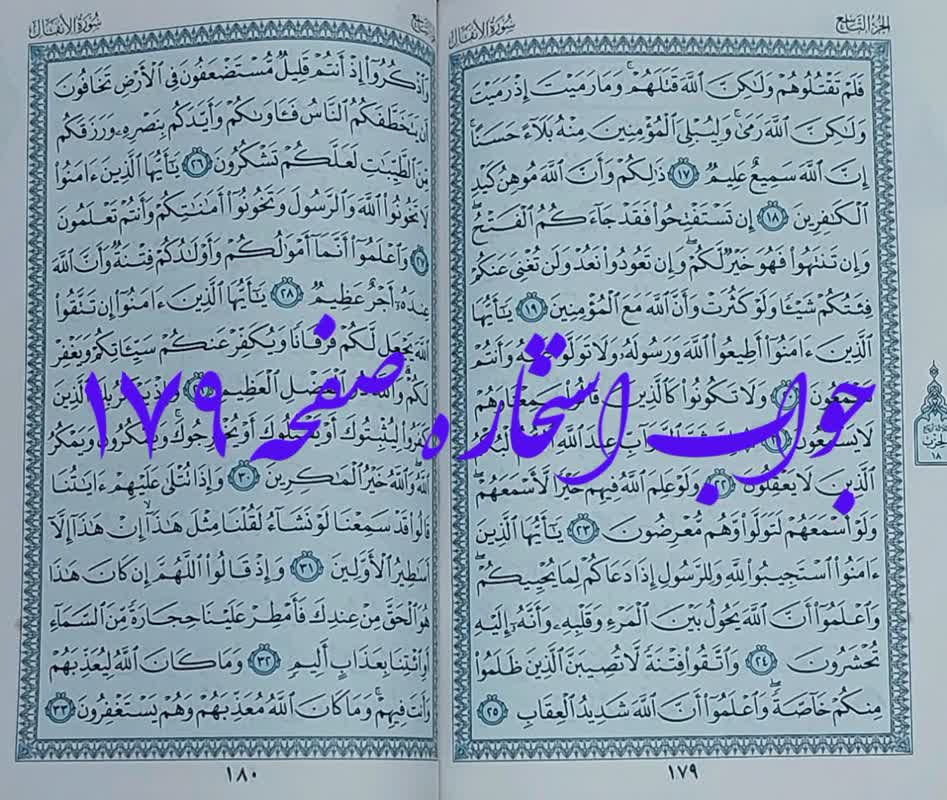 الجزء التاسع
سورة الأنفال
فَلَمْ تَقْتُلُوهُمْ وَلَٰكِنَّ ٱللَّهَ قَتَلَهُمْ ۚ وَمَا رَمَيْتَ إِذْ رَمَيْتَ
وَلَٰكِنَّ ٱللَّهَ رَمَىٰ ۚ وَلِيُبْلِىَ ٱلْمُؤْمِنِينَ مِنْهُ بَلَآءً حَسَنًا ۚ
إِنَّ ٱللَّهَ سَمِيعٌ عَلِيمٌ ١٧ ذَٰلِكُمْ وَأَنَّ ٱللَّهَ مُوهِنُ كَيْدِ
ٱلْكَٰفِرِينَ ١٨ إِن تَسْتَفْتِحُوا۟ فَقَدْ جَآءَكُمُ ٱلْفَتْحُ ۖ
وَإِن تَنتَهُوا۟ فَهُوَ خَيْرٌ لَّكُمْ ۖ وَإِن تَعُودُوا۟ نَعُدْ وَلَن تُغْنِىَ عَنكُمْ
فِئَتُكُمْ شَيْـًٔا وَلَوْ كَثُرَتْ وَأَنَّ ٱللَّهَ مَعَ ٱلْمُؤْمِنِينَ ١٩ يَٰٓأَيُّهَا
ٱلَّذِينَ ءَامَنُوٓا۟ أَطِيعُوا۟ ٱللَّهَ وَرَسُولَهُۥ وَلَا تَوَلَّوْا۟ عَنْهُ وَأَنتُمْ
تَسْمَعُونَ ٢٠ وَلَا تَكُونُوا۟ كَٱلَّذِينَ قَالُوا۟ سَمِعْنَا وَهُمْ
لَا يَسْمَعُونَ ٢١ إِنَّ شَرَّ ٱلدَّوَآبِّ عِندَ ٱللَّهِ ٱلصُّمُّ ٱلْبُكْمُ
ٱلَّذِينَ لَا يَعْقِلُونَ ٢٢ وَلَوْ عَلِمَ ٱللَّهُ فِيهِمْ خَيْرًا لَّأَسْمَعَهُمْ ۖ
وَلَوْ أَسْمَعَهُمْ لَتَوَلَّوا۟ وَّهُم مُّعْرِضُونَ ٢٣ يَٰٓأَيُّهَا ٱلَّذِينَ
ءَامَنُوا۟ ٱسْتَجِيبُوا۟ لِلَّهِ وَلِلرَّسُولِ إِذَا دَعَاكُمْ لِمَا يُحْيِيكُمْ ۖ
وَٱعْلَمُوٓا۟ أَنَّ ٱللَّهَ يَحُولُ بَيْنَ ٱلْمَرْءِ وَقَلْبِهِۦ وَأَنَّهُۥٓ إِلَيْهِ
تُحْشَرُونَ ٢٤ وَٱتَّقُوا۟ فِتْنَةً لَّا تُصِيبَنَّ ٱلَّذِينَ ظَلَمُوا۟
مِنكُمْ خَآصَّةً ۖ وَٱعْلَمُوٓا۟ أَنَّ ٱللَّهَ شَدِيدُ ٱلْعِقَابِ ٢٥
١٧٩
سورة الأنفال
وَٱذْكُرُوٓا۟ إِذْ أَنتُمْ قَلِيلٌ مُّسْتَضْعَفُونَ فِى ٱلْأَرْضِ تَخَافُونَ
أَن يَتَخَطَّفَكُمُ ٱلنَّاسُ فَـَٔاوَىٰكُمْ وَأَيَّدَكُم بِنَصْرِهِۦ وَرَزَقَكُم
مِّنَ ٱلطَّيِّبَٰتِ لَعَلَّكُمْ تَشْكُرُونَ ٢٦ يَٰٓأَيُّهَا ٱلَّذِينَ ءَامَنُوا۟
لَا تَخُونُوا۟ ٱللَّهَ وَٱلرَّسُولَ وَتَخُونُوٓا۟ أَمَٰنَٰتِكُمْ وَأَنتُمْ تَعْلَمُونَ
٢٧ وَٱعْلَمُوٓا۟ أَنَّمَآ أَمْوَٰلُكُمْ وَأَوْلَٰدُكُمْ فِتْنَةٌ وَأَنَّ ٱللَّهَ
عِندَهُۥٓ أَجْرٌ عَظِيمٌ ٢٨ يَٰٓأَيُّهَا ٱلَّذِينَ ءَامَنُوٓا۟ إِن تَتَّقُوا۟
ٱللَّهَ يَجْعَل لَّكُمْ فُرْقَانًا وَيُكَفِّرْ عَنكُمْ سَيِّـَٔاتِكُمْ وَيَغْفِرْ
لَكُمْ ۗ وَٱللَّهُ ذُو ٱلْفَضْلِ ٱلْعَظِيمِ ٢٩ وَإِذْ يَمْكُرُ بِكَ ٱلَّذِينَ
كَفَرُوا۟ لِيُثْبِتُوكَ أَوْ يَقْتُلُوكَ أَوْ يُخْرِجُوكَ ۚ وَيَمْكُرُونَ وَيَمْكُرُ
ٱللَّهُ ۖ وَٱللَّهُ خَيْرُ ٱلْمَٰكِرِينَ ٣٠ وَإِذَا تُتْلَىٰ عَلَيْهِمْ ءَايَٰتُنَا
قَالُوا۟ قَدْ سَمِعْنَا لَوْ نَشَآءُ لَقُلْنَا مِثْلَ هَٰذَآ ۙ إِنْ هَٰذَآ إِلَّآ
أَسَٰطِيرُ ٱلْأَوَّلِينَ ٣١ وَإِذْ قَالُوا۟ ٱللَّهُمَّ إِن كَانَ هَٰذَا
هُوَ ٱلْحَقَّ مِنْ عِندِكَ فَأَمْطِرْ عَلَيْنَا حِجَارَةً مِّنَ ٱلسَّمَآءِ
أَوِ ٱئْتِنَا بِعَذَابٍ أَلِيمٍ ٣٢ وَمَا كَانَ ٱللَّهُ لِيُعَذِّبَهُمْ
وَأَنتَ فِيهِمْ ۚ وَمَا كَانَ ٱللَّهُ مُعَذِّبَهُمْ وَهُمْ يَسْتَغْفِرُونَ ٣٣
١٨٠
جواب استخاره صفحه ۱۷۹